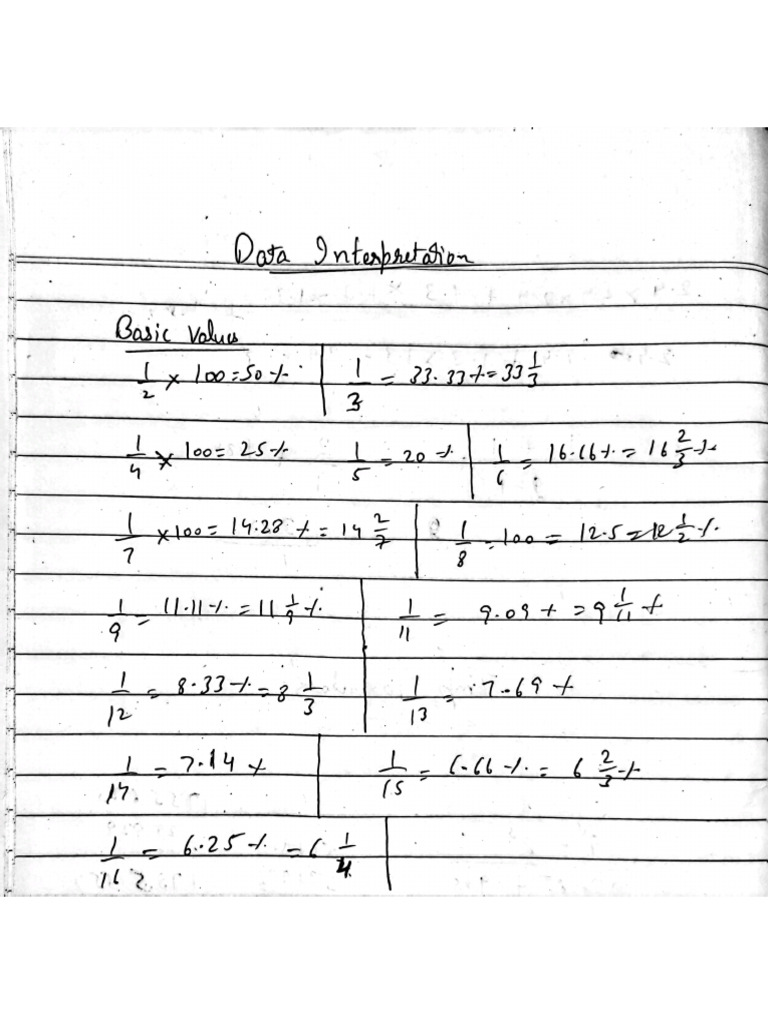 Data Interpretation
Basic Values
1/2 × 100 = 50 % | 1/3 = 33.33 % = 33 1/3
1/4 × 100 = 25 % 1/5 = 20 % | 1/6 = 16.66 % = 16 2/3 %
1/7 × 100 = 14.28 % = 14 2/7 | 1/8 = 100 = 12.5 = 12 1/2 %
1/9 = 11.11 % = 11 1/9 % | 1/11 = 9.09 % = 9 1/11 %
1/12 = 8.33 % = 8 1/3 | 1/13 = 7.69 %
1/14 = 7.14 % | 1/15 = 6.66 % = 6 2/3 %
1/16 = 6.25 % = 6 1/4